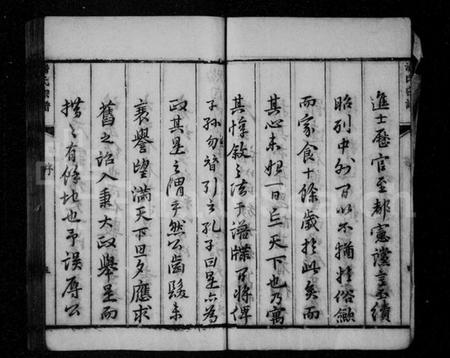 進士歷官至都憲讜言至績
昭列中外百以不獨於俗斂
而家食十餘歲於此矣而
其心未始一日忘天下也乃寓
其惇敘之法于譜牒百將俾
子孫勿替引之孔子曰是亦為
政其是之謂乎然公齒髮未
衰譽望滿天下旦夕應求
舊之詔入秉大政舉是而
措之有餘地也予誤辱公
氏宗譜
序